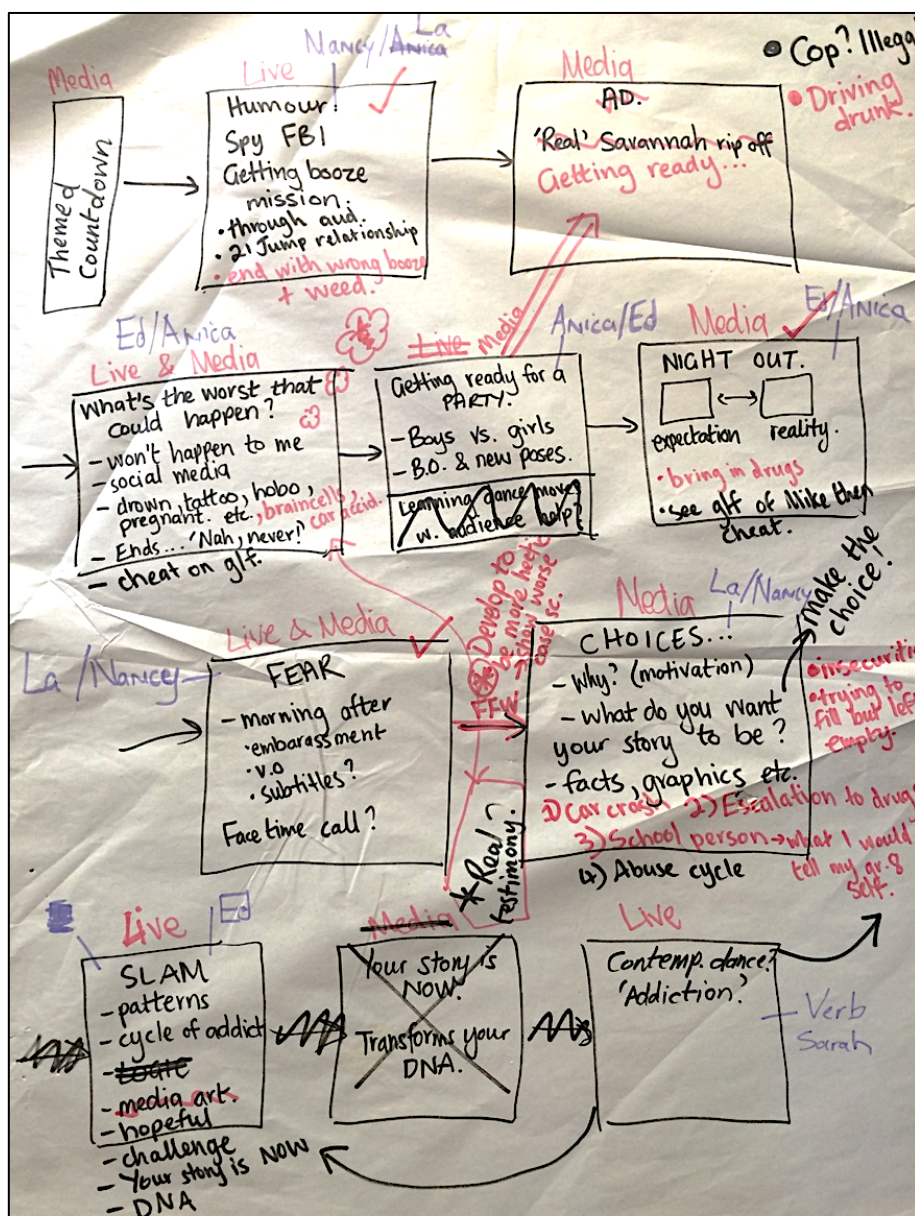 La
Nancy/Anica
Media
Live
Media
• Cop? Illega
• Driving
drunk.
Themed
Countdown
Humour!
Spy FBI
Getting booze
mission.
• through aud.
• 21 Jump relationship
• end with wrong booze
+ weed.
AD.
'Real' Savannah rip off
Getting ready...
Ed/Anica
Live & Media
What's the worst that
could happen?
- won't happen to me
- social media
- drown, tattoo, hobo,
pregnant. etc, braincells,
car accid.
- Ends... 'Nah, never!'
- cheat on g/f.
Live Media
Anica/Ed
Getting ready for a
PARTY.
- Boys vs. girls
- B.O. & new poses.
Learning dance moves
w. audience help?
Media
Ed/Anica
NIGHT OUT.
expectation reality.
• bring in drugs
• see g/f of Mike then
cheat.
La/Nancy
Live & Media
FEAR
- morning after
• embarassment
• v.o
• subtitles?
Facetime call?
Develop to
be more hectic
→ show worse
case sc.
FFW.
* Real
testimony?
Media
La/Nancy
make the
choice!
CHOICES...
- Why? (motivation)
- what do you want
your story to be?
- facts, graphics etc.
1) Car crash 2) Escalation to drug
3) School person → what I would
tell my gr. 8
self.
4) Abuse cycle
• insecuriti
• trying to
fill but left
empty.
Ed
Live
SLAM
- patterns
- cycle of addict
- LOGIC
- media art.
- hopeful
- challenge
- Your story is NOW
- DNA
Media
Your story is
NOW.
Transforms your
DNA.
Live
Contemp. dance?
'Addiction?'
- Verb
Sarah